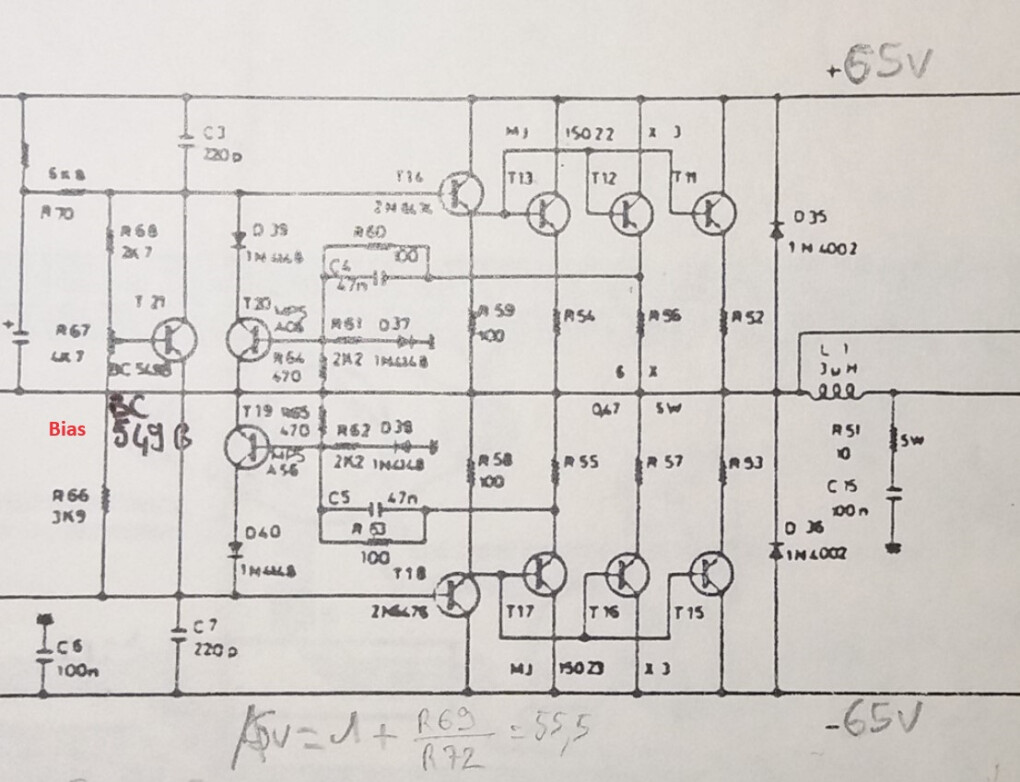 +65V
C3
220p
MJ 15022 X 3
6K8
T14
T13
T12
T11
R70
R68
2K7
D39
1N4148
R60
100
D35
1N4002
C4
47n
T21
T20
MPS
A06
R61
D37
R59
100
R54
R56
R52
+
R67
4K7
R64
470
2K2
1N4148
BC 549B
L1
3uH
6 X
BC
549B
Bias
T19
R65
470
R62
D38
0,47 5W
MPS
A56
2K2
1N4148
R58
100
R55
R57
R53
R51
10
5W
R66
3K9
C5
47n
C15
100n
D40
1N4148
R63
100
D36
1N4002
T18
2N6476
T17
T16
T15
C6
100n
C7
220p
MJ 15023 X 3
Av = 1 + R69 / R72 = 55,5
-65V